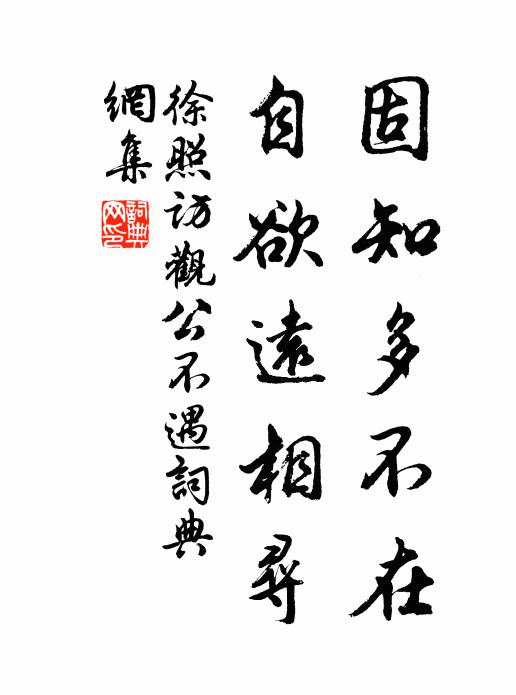 固知多不在
自欲遠相尋
徐照訪觀公不遇詞典
網集
詞典
网印